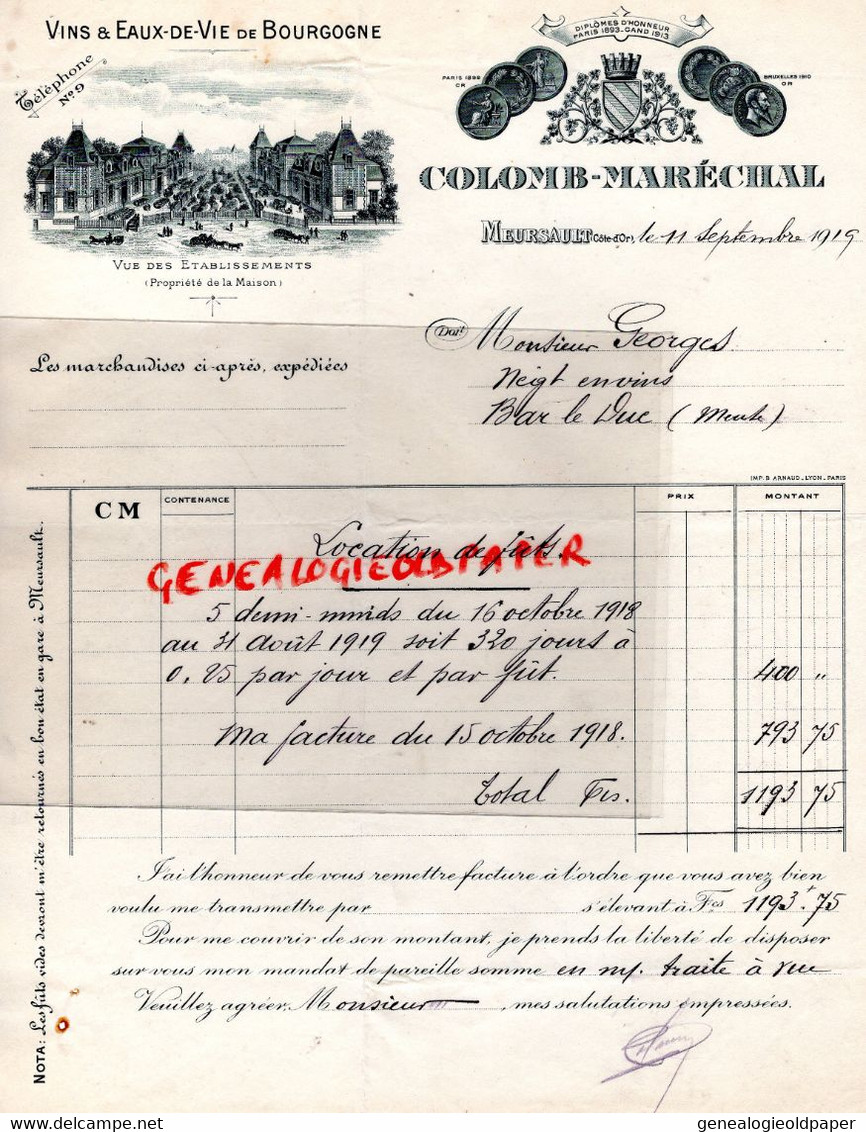 VINS & EAUX-DE-VIE DE BOURGOGNE
Téléphone
No. 9
DIPLÔMES D'HONNEUR
PARIS 1893-GAND 1913
PARIS 1899
CR
BRUXELLES 1910
OR
COLOMB-MARÉCHAL
MEURSAULT (Côte-d'Or), le 11 Septembre 1919
VUE DES ETABLISSEMENTS
(Propriété de la Maison)
Doit
Monsieur Georges
Négt en vins
Bar le Duc (Meuse)
Les marchandises ci-après, expédiées
IMP. B. ARNAUD_LYON_PARIS
CM
CONTENANCE
PRIX
MONTANT
Location de fûts.
GENEALOGIEOLDPAPER
5 demi-muids du 16 octobre 1918
au 31 Août 1919 soit 320 jours à
0,25 par jour et par fût. 400 "
Ma facture du 15 octobre 1918. 793 75
Total Frs. 1193 75
J'ai l'honneur de vous remettre facture à l'ordre que vous avez bien
voulu me transmettre par s'élevant à Fcs 1193f.75
Pour me couvrir de son montant, je prends la liberté de disposer
sur vous mon mandat de pareille somme en m/. traite à vue
Veuillez agréer, Monsieur, mes salutations empressées.
NOTA: Les fûts vides devront m'être retournés en bon état en gare à Meursault.
www.delcampe.net
genealogieoldpaper